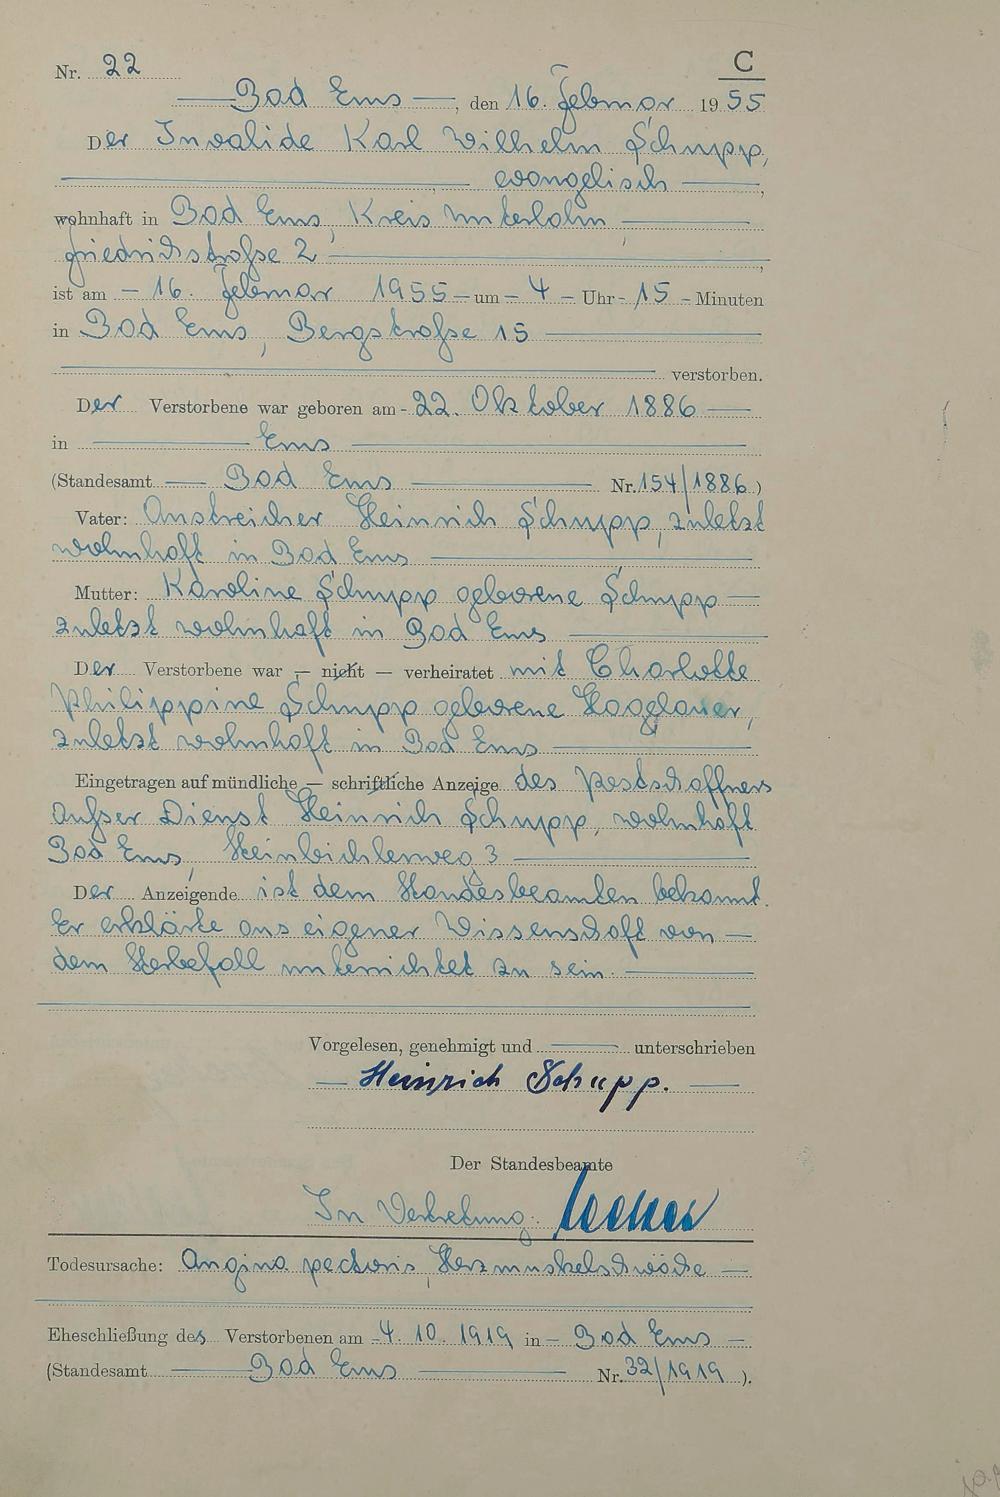 Nr. 22
C
Bad Ems, den 16. Februar 1955
Der Invalide Karl Wilhelm Schupp,
evangelisch,
wohnhaft in Bad Ems, Kreis Unterlahn,
Friedrichstraße 2
ist am - 16. Februar 1955 - um - 4 - Uhr - 15 - Minuten
in Bad Ems, Bergstraße 15
verstorben.
Der Verstorbene war geboren am - 22. Oktober 1886
in Ems
(Standesamt Bad Ems Nr. 154/1886)
Vater: Anstreicher Heinrich Schupp, zuletzt
wohnhaft in Bad Ems
Mutter: Karoline Schupp geborene Schupp
zuletzt wohnhaft in Bad Ems
Der Verstorbene war — nicht — verheiratet mit Charlotte
Philippine Schupp geborene
zuletzt wohnhaft in Bad Ems
Eingetragen auf mündliche — schriftliche Anzeige des Postschaffners
außer Dienst Heinrich Schupp, wohnhaft
Bad Ems, 3
Der Anzeigende ist dem Standesbeamten bekannt.
Er erklärte aus eigener Wissenschaft von
dem Sterbefall unterrichtet zu sein.
Vorgelesen, genehmigt und unterschrieben
Heinrich Schupp.
Der Standesbeamte
In Vertretung:
Todesursache: Angina pectoris, Herzmuskelschwäche
Eheschließung des Verstorbenen am - 4. 10. 1919 in - Bad Ems -
(Standesamt Bad Ems Nr. 32/1919).